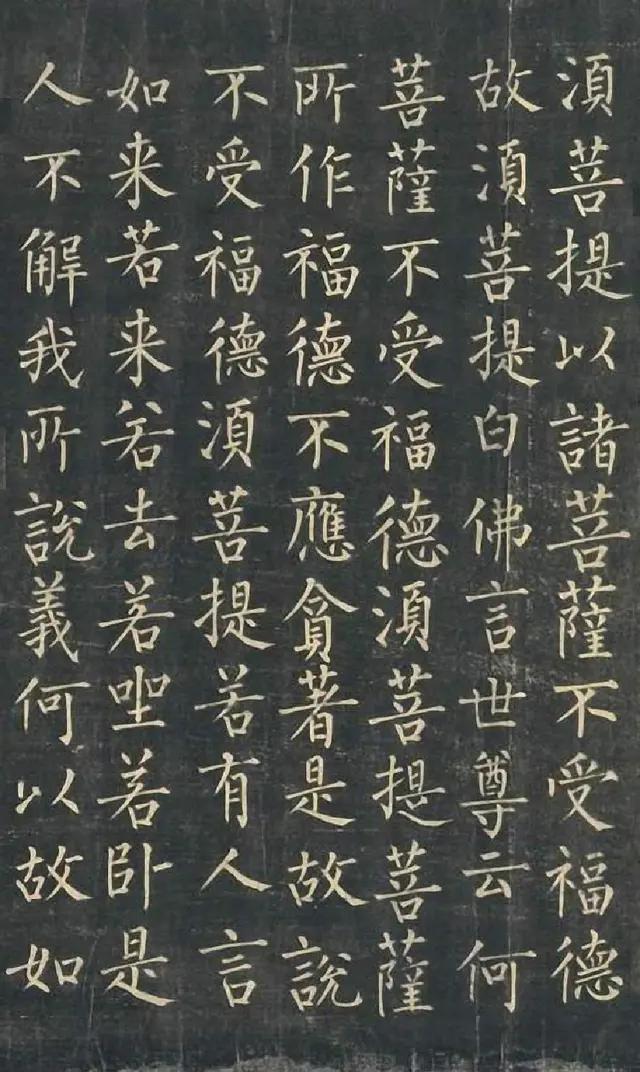 須菩提以諸菩薩不受福德
故須菩提白佛言世尊云何
菩薩不受福德須菩提菩薩
所作福德不應貪著是故説
不受福德須菩提若有人言
如来若来若去若坐若卧是
人不解我所説義何以故如